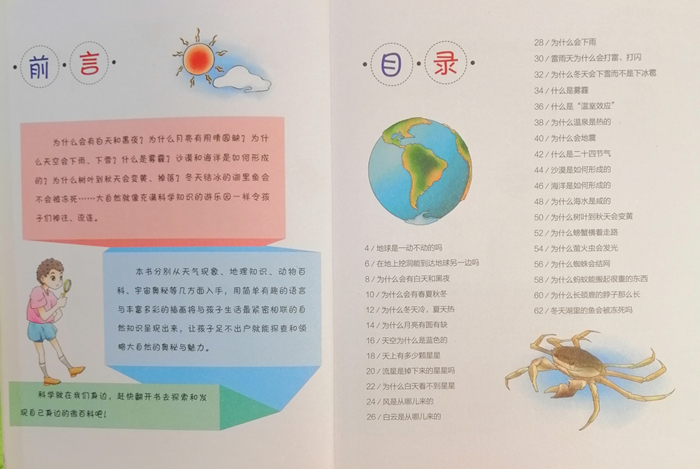 前言
为什么会有白天和黑夜？为什么月亮有阴晴圆缺？为什
么天空会下雨、下雪？什么是雾霾？沙漠和海洋是如何形成
的？为什么树叶到秋天会变黄、掉落？冬天结冰的湖里鱼会
不会被冻死……大自然就像充满科学知识的游乐园一样令孩
子们神往、流连。
本书分别从天气现象、地理知识、动物百
科、宇宙奥秘等几方面入手，用简单有趣的语言
与丰富多彩的插画将与孩子生活最紧密相联的自
然知识呈现出来，让孩子足不出户就能探查和领
略大自然的奥秘与魅力。
科学就在我们身边，赶快翻开书去探索和发
现自己身边的微百科吧！
目录
4 / 地球是一动不动的吗
6 / 在地上挖洞能到达地球另一边吗
8 / 为什么会有白天和黑夜
10 / 为什么会有春夏秋冬
12 / 为什么冬天冷，夏天热
14 / 为什么月亮有圆有缺
16 / 天空为什么是蓝色的
18 / 天上有多少颗星星
20 / 流星是掉下来的星星吗
22 / 为什么白天看不到星星
24 / 风是从哪儿来的
26 / 白云是从哪儿来的
28 / 为什么会下雨
30 / 雷雨天为什么会打雷、打闪
32 / 为什么冬天会下雪而不是下冰雹
34 / 什么是雾霾
36 / 什么是“温室效应”
38 / 为什么温泉是热的
40 / 为什么会地震
42 / 什么是二十四节气
44 / 沙漠是如何形成的
46 / 海洋是如何形成的
48 / 为什么海水是咸的
50 / 为什么树叶到秋天会变黄
52 / 为什么螃蟹横着走路
54 / 为什么萤火虫会发光
56 / 为什么蜘蛛会结网
58 / 为什么蚂蚁能搬起很重的东西
60 / 为什么长颈鹿的脖子那么长
62 / 冬天湖里的鱼会被冻死吗